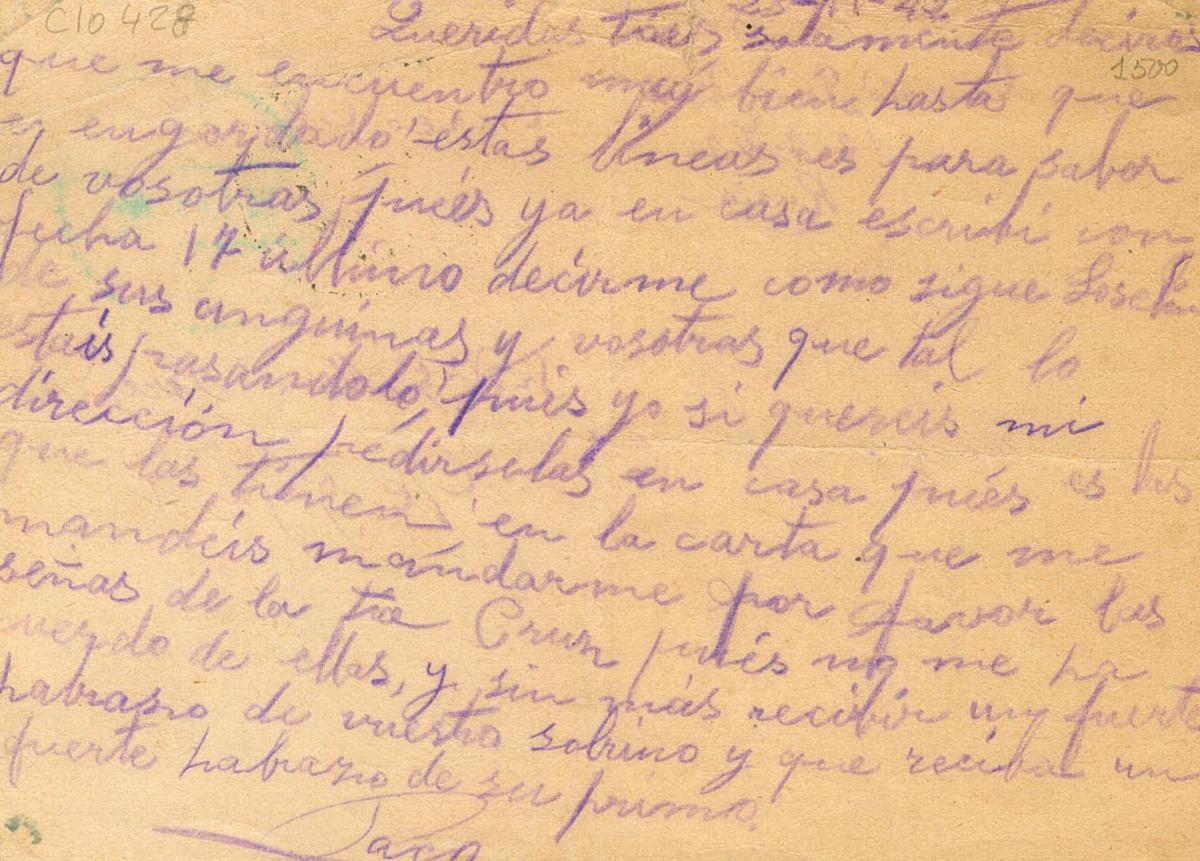 C10 428
Queridas tias solamente deciros
1500
que me encuentro muy bien hasta que
e engordado estas lineas es para saber
de vosotras, pués ya en casa escribi con
fecha 17 ultimo decirme como sigue
de sus anguinas y vosotras que tal lo
estaís pasandolo, pués yo si quereis mi
dirección pédirselas en casa pués es las
que las tienen en la carta que me
mandéis mandarme por favor las
señas de la tia Cruz pués no me ha
cuerdo de ellas, y sin más recibir un fuerte
habrazo de vuestro sobrino y que reciba un
fuerte habrazo de su primo.
Paco